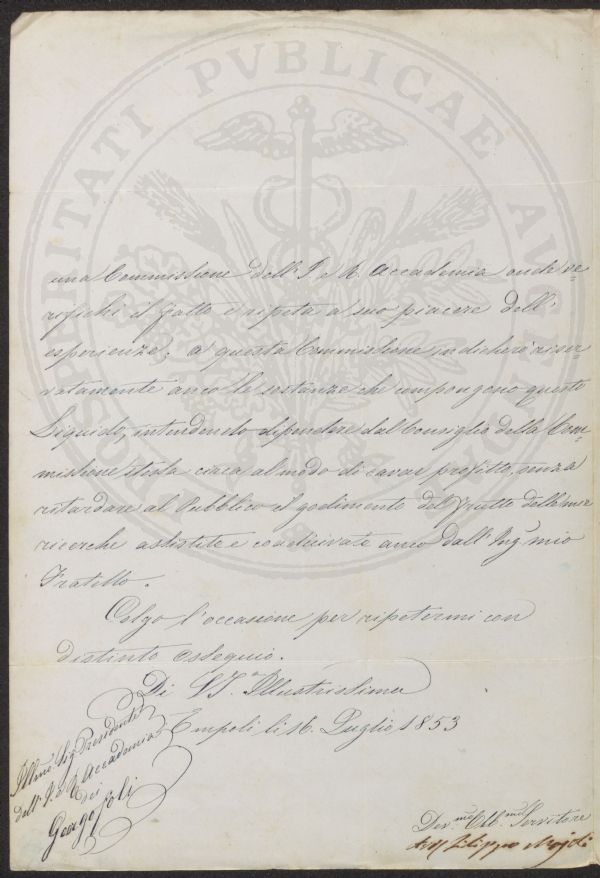 PROSPERITATI PVBLICAE AVGENDAE
una Commissione dell' I. e R. Accademia anche ve=
rifichi il fatto e ripeta a suo piacere dell'
esperienze; a questa Commissione indicherò riser=
vatamente anco le sostanze che compongono questo
Liquido, intendendo dipendere dal Consiglio della Com=
missione stessa circa al modo di cavar profitto, senza
ritardare al Pubblico il godimento del frutto delle mie
ricerche assistite e coadiuvate anco dall' Ing.re mio
Fratello.
Colgo l'occasione per ripetermi con
distinto ossequio.
Di S.S. Illustrissima
Empoli li 16. Luglio 1853
Illmo Sig. Presidente
dell' I. e R. Accademia
dei
Georgofili
Dev.mo Obb.mo Servitore
Filippo